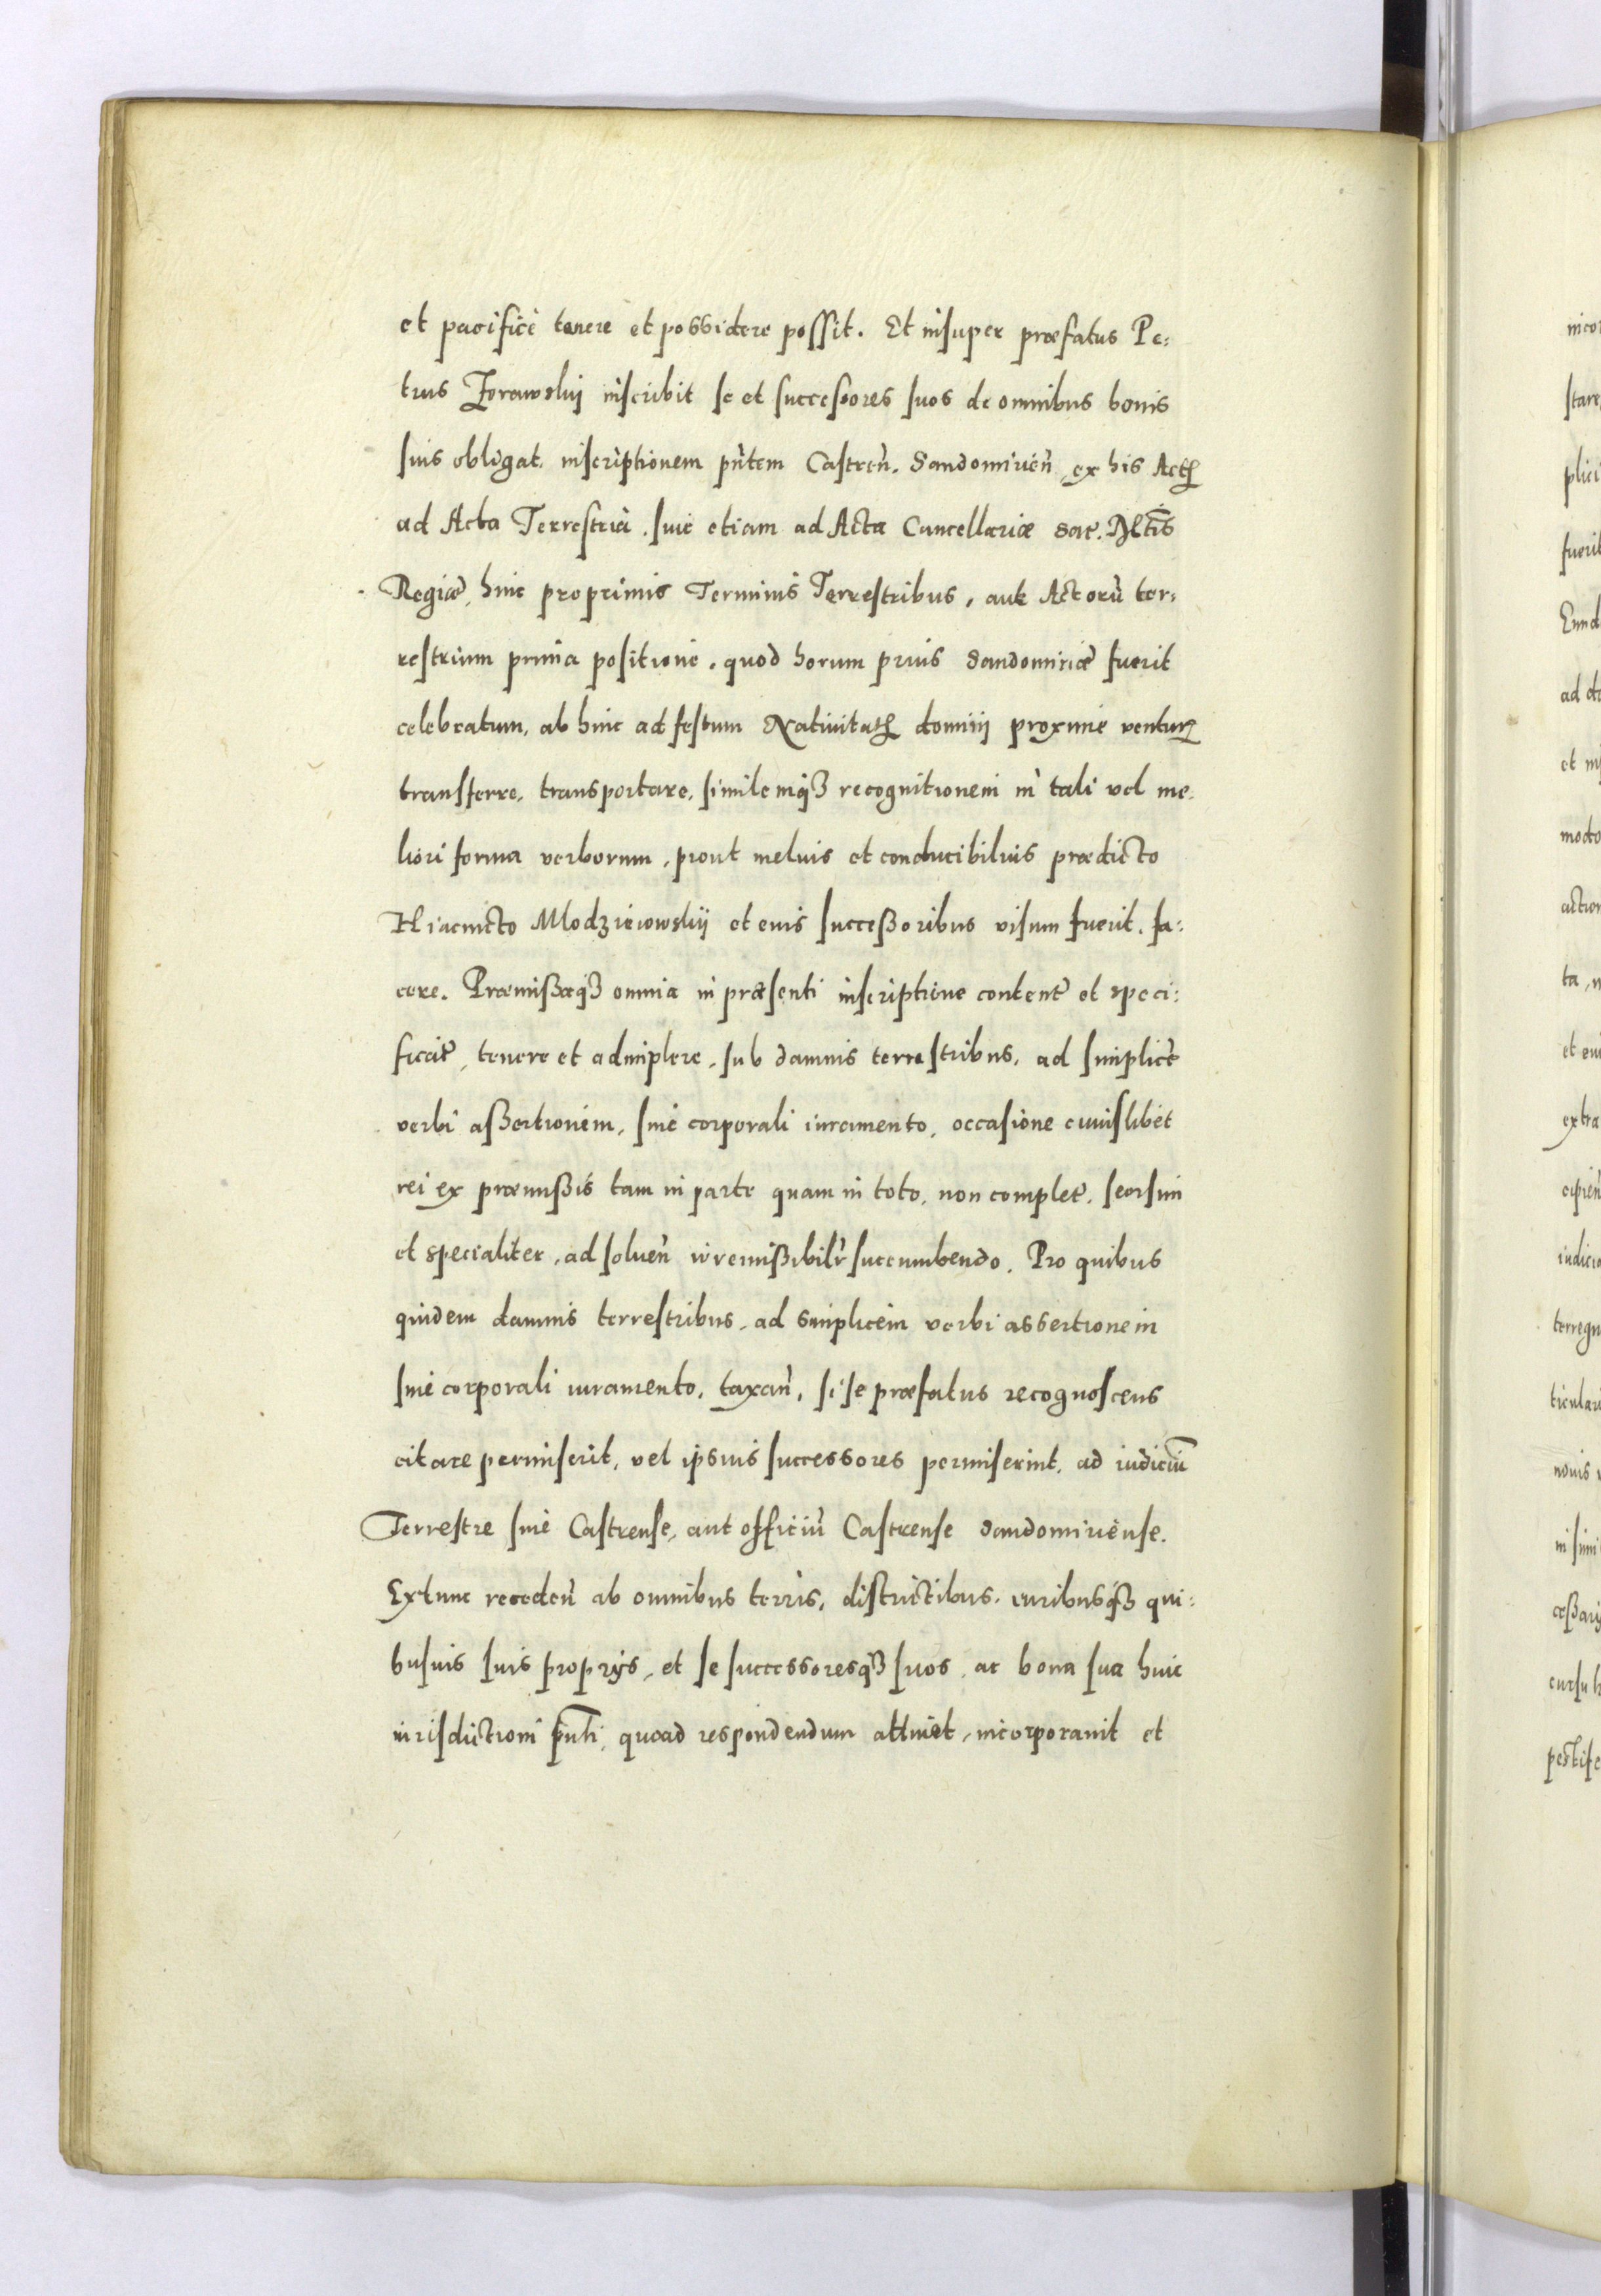 et pacificè tenere et possidere possit. Et insuper præfatus Pe:
trus Zorawskij inscribit se et successores suos de omnibus bonis
suis obligat, inscriptionem pñtem Castreñ. Sandomirieñ, ex his Actis
ad Acta Terrestria, siue etiam ad Acta Cancellariæ Sac. Mtis
Regiæ, hinc pro primis Terminis Terrestribus, aut Actorũ ter:
restrium prima positione, quod horum prius Sandomiriæ fuerit
celebratum, ab hinc ad festum Natiuitatis domini proxime venturis
transferre, transportare, similemq3 recognitionem in tali vel me:
liori forma verborum, prout melius et conducibilius prædicto
Hiacincto Mlodziewowskij et eius successoribus visum fuerit, fa:
cere. Præmissaq3 omnia in præsenti inscriptione content et speci:
ficat, tenere et adimplere, sub damnis terrestribus, ad simplicẽ
verbi assertionem, sine corporali iuramento, occasione cuiuslibet
rei ex præmissis tam in parte quam in toto, non complet, seorsim
et specialiter, ad solueñ irremissibilr̃ succumbendo. Pro quibus
quidem damnis terrestribus, ad simplicem verbi assertionem
sine corporali iuramento, taxañ, si se præfatus recognoscens
citare permiserit, vel ipsius successores permiserint, ad iudiciũ
Terrestre siue Castrense, aut officiũ Castrense Sandomiriense.
Extunc recedeñ ab omnibus terris, districtibus, iuribusq3 qui:
busuis suis proprijs, et se successoresq3 suos, ac bona sua huic
iurisdictioni pñti, quoad respondendum attinet, incorporauit et